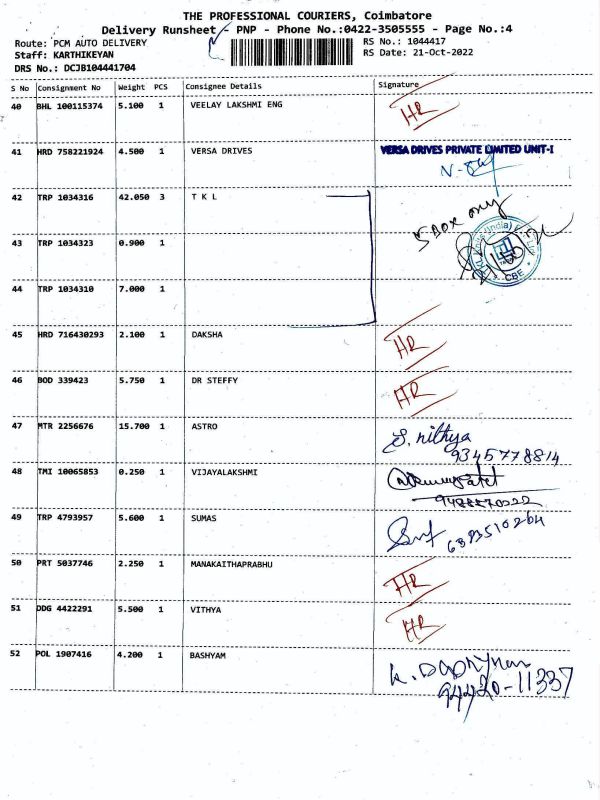 THE PROFESSIONAL COURIERS, Coimbatore
Delivery Runsheet - PNP - Phone No.:0422-3505555 - Page No.:4
Route: PCM AUTO DELIVERY RS No.: 1044417
Staff: KARTHIKEYAN RS Date: 21-Oct-2022
DRS No.: DCJB104441704
S No Consignment No Weight PCS Consignee Details Signature
40 BHL 100115374 5.100 1 VEELAY LAKSHMI ENG HR
41 HRD 758221924 4.500 1 VERSA DRIVES VERSA DRIVES PRIVATE LIMITED UNIT-I
42 TRP 1034316 42.050 3 T K L
5 Box only
43 TRP 1034323 0.900 1
CBE
44 TRP 1034310 7.000 1
45 HRD 716430293 2.100 1 DAKSHA HR
46 BOD 339423 5.750 1 DR STEFFY HR
47 MTR 2256676 15.700 1 ASTRO S. nithya
9345778814
48 TMI 10065853 0.250 1 VIJAYALAKSHMI
9488870222
49 TRP 4793957 5.600 1 SUMAS
50 PRT 5037746 2.250 1 MANAKAITHAPRABHU HR
51 DDG 4422291 5.500 1 VITHYA HR
52 POL 1907416 4.200 1 BASHYAM
94420-11337